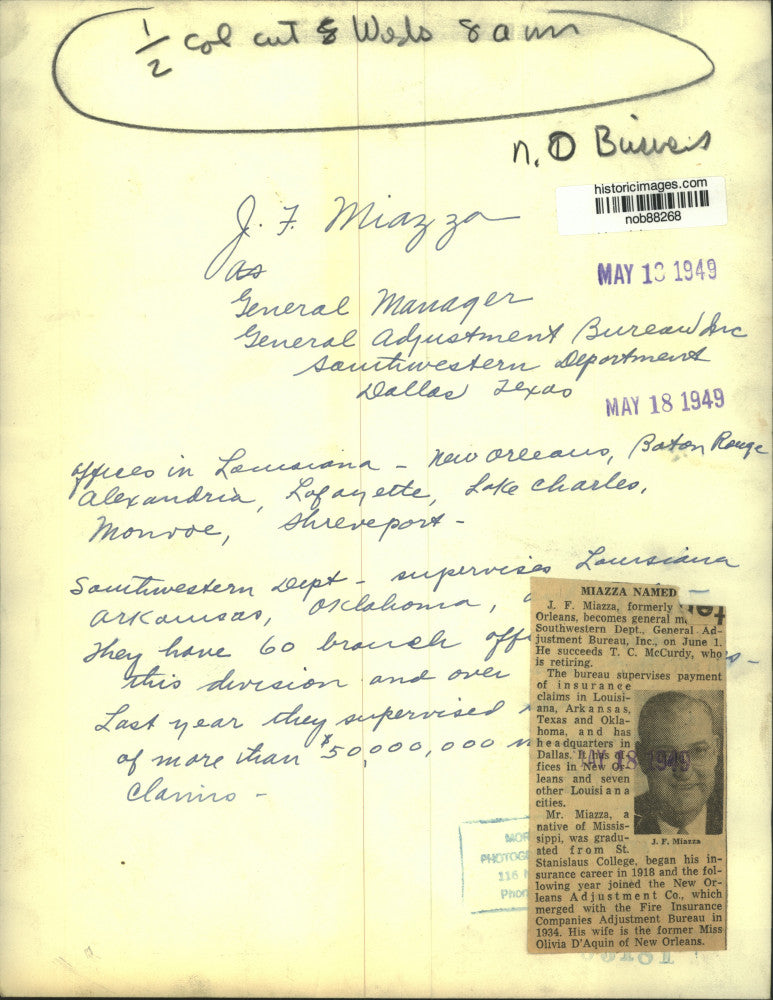 1/2 col cut & Weds 8 a m
n. O
historicimages.com
nob88268
J. F. Miazza
as
MAY 13 1949
General Manager
General Adjustment Bureau Inc
Southwestern Department
Dallas Texas
MAY 18 1949
offices in Louisiana - New Orleans, Baton Rouge
Alexandria, Lafayette, Lake Charles,
Monroe, Shreveport -
Southwestern Dept - supervises Louisiana
Arkansas, Oklahoma,
They have 60 branch
this division and over
Last year they supervised
of more than $50,000,000
Claims -
MIAZZA NAMED
J. F. Miazza, formerly
Orleans, becomes general
Southwestern Dept., General Ad-
justment Bureau, Inc., on June 1.
He succeeds T. C. McCurdy, who
is retiring.
The bureau supervises payment
of insurance
claims in Louisi-
ana, Arkansas,
Texas and Okla-
homa, and has
headquarters in
Dallas. It has of-
fices in New Or-
leans and seven
other Louisiana
cities.
Mr. Miazza, a
native of Missis-
sippi, was gradu-
ated from St.
Stanislaus College, began his in-
surance career in 1918 and the fol-
lowing year joined the New Or-
leans Adjustment Co., which
merged with the Fire Insurance
Companies Adjustment Bureau in
1934. His wife is the former Miss
Olivia D'Aquin of New Orleans.
MAY 18 1949
J. F. Miazza
116